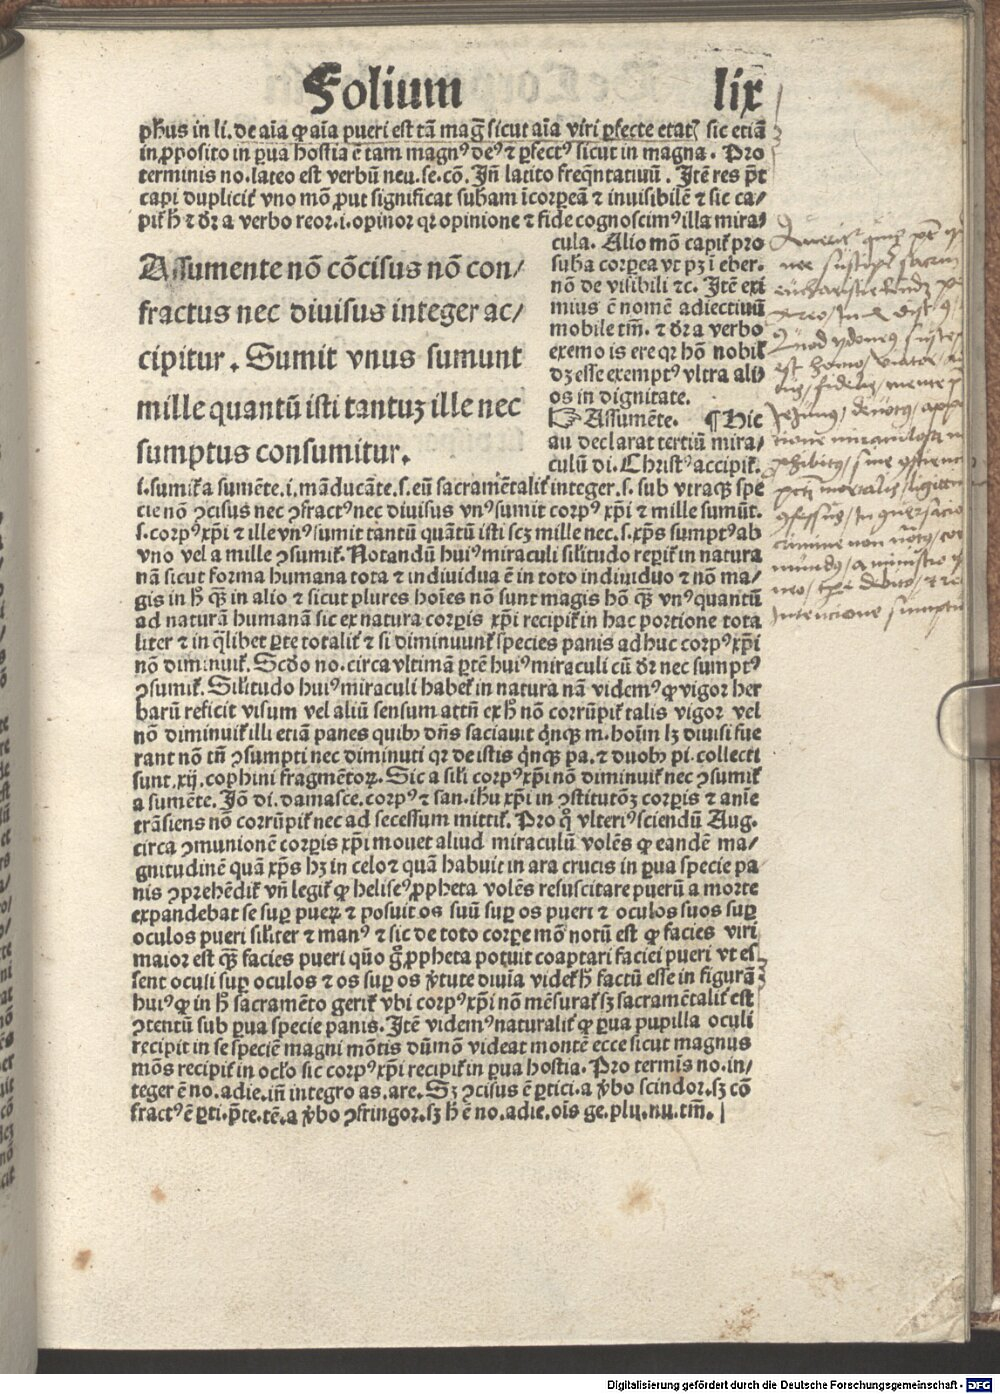 Folium lix
phus in li. de aīa ꝙ aīa pueri est tā mag̃ sicut aīa viri ꝑfecte etatꝭ sic etiā
in ꝓposito in ꝑua hostia ē tam magnꝰ deꝰ ⁊ ꝑfectꝰ sicut in magna. Pro
terminis no. lateo est verbū neu. se. cō. Jñ latito freq̄ntatiuū. Jtē res pn̄t
capi duplicit̄ vno mō ꝓut significat subam īcorpeā ⁊ inuisibilē ⁊ sic ca/
pit̄ h̄ ⁊ dr̄ a verbo reor .i. opinor qr opinione ⁊ fide cognoscimꝰ illa mira/
cula. Alio mō capit̄ pro
suba corpea vt pꝫ ī eber.
nō de visibili ⁊c. Jtē exi
mius ē nomē adiectiuū
mobile tm̄. ⁊ dr̄ a verbo
eximo is ere qr hō nobil̄
dꝫ esse exemptꝰ vltra ali
os in dignitate.
☞ Assumēte. ¶ Hic
au declarat tertiū mira/
culū di. Christꝰ accipit̄.
Assumente nō cōcisus nō con/
fractus nec diuisus integer ac/
cipitur. Sumit vnus sumunt
mille quantū isti tantuꝫ ille nec
sumptus consumitur.
i. sumit̄ a sumēte .i. māducāte .s. eū sacramētalit̄ integer .s. sub vtraqꝫ spe
cie nō ꝯcisus nec ꝯfractꝰ nec diuisus vnꝰ sumit corpꝰ xp̄i ⁊ mille sumūt.
s. corpꝰ xp̄i ⁊ ille vnꝰ sumit tantū quātū isti scꝫ mille nec .s. xp̄s sumptꝰ ab
vno vel a mille ꝯsumit̄. Notandū huiꝰ miraculi silitudo reperit̄ in natura
nā sicut forma humana tota ⁊ indiuidua ē in toto indiuiduo ⁊ nō ma/
gis in h̄ qꝫ in alio ⁊ sicut plures hoīes nō sunt magis hō qꝫ vnꝰ quantū
ad naturā humanā sic ex natura corpis xp̄i recipit̄ in hac portione tota
liter ⁊ in q̄libet ꝑte totalit̄ ⁊ si diminuunt̄ species panis adhuc corpꝰ xp̄i
nō diminuit̄. Scd̄o no. circa vltimā ꝑtē huiꝰ miraculi cū dr̄ nec sumptꝰ
ꝯsumit̄. Silitudo huiꝰ miraculi habet̄ in natura nā videmꝰ ꝙ vigor her
barū reficit visum vel aliū sensum attn̄ ex h̄ nō corrūpit̄ talis vigor vel
nō diminuit̄ illi etiā panes quibꝫ dn̄s saciauit q̇nqꝫ m. hoīm lꝫ diuisi fue
rant nō tn̄ ꝯsumpti nec diminuti qr de istis q̇nqꝫ pa. ⁊ duobꝫ pi. collecti
sunt .xij. cophini fragmētoꝝ. Sic a sili corpꝰ xp̄i nō diminuit̄ nec ꝯsumit̄
a sumēte. Jō di. damasce. corpꝰ ⁊ san. ihu xp̄i in ꝯstitutōꝫ corpis ⁊ anīe
trāsiens nō corrūpit̄ nec ad secessum mittit̄. Pro q̊ vlteriꝰ sciendū Aug.
circa ꝯmunionē corpis xp̄i mouet aliud miraculū volēs ꝙ eandē ma/
gnitudinē quā xp̄s hꝫ in celo ⁊ quā habuit in ara crucis in ꝑua specie pa
nis ꝯprehēdit̄ vn̄ legit̄ ꝙ heliseꝰ ꝓpheta volēs resuscitare puerū a morte
expandebat se suꝑ pueꝝ ⁊ posuit os suū suꝑ os pueri ⁊ oculos suos suꝑ
oculos pueri siliter ⁊ manꝰ ⁊ sic de toto corpe mō notū est ꝙ facies viri
maior est qꝫ facies pueri quō g̊ ꝓpheta potuit coaptari faciei pueri vt es
sent oculi suꝑ oculos ⁊ os suꝑ os v̄tute diuīa videt̄ h̄ factū esse in figurā
huiꝰ ꝙ in h̄ sacramēto gerit̄ vbi corpꝰ xp̄i nō mēsurat̄ sꝫ sacramētalit̄ est
ꝯtentū sub ꝑua specie panis. Jtē videmꝰ naturalit̄ ꝙ ꝑua pupilla oculi
recipit in se speciē magni mōtis dūmō videat montē ecce sicut magnus
mōs recipit̄ in oclo sic corpꝰ xp̄i recipit̄ in ꝑua hostia. Pro termīs no. in/
teger ē no. adie. in̄ integro as. are. Sꝫ ꝯcisus ē ꝑtici. a v̄bo scindor. sꝫ cō
fractꝰ ē ꝑti. p̄te. tē. a v̄bo ꝯfringor. sꝫ h̄ ē no. adie. oīs ge. plu. nu. tm̄.
Digitalisierung gefördert durch die Deutsche Forschungsgemeinschaft - DFG